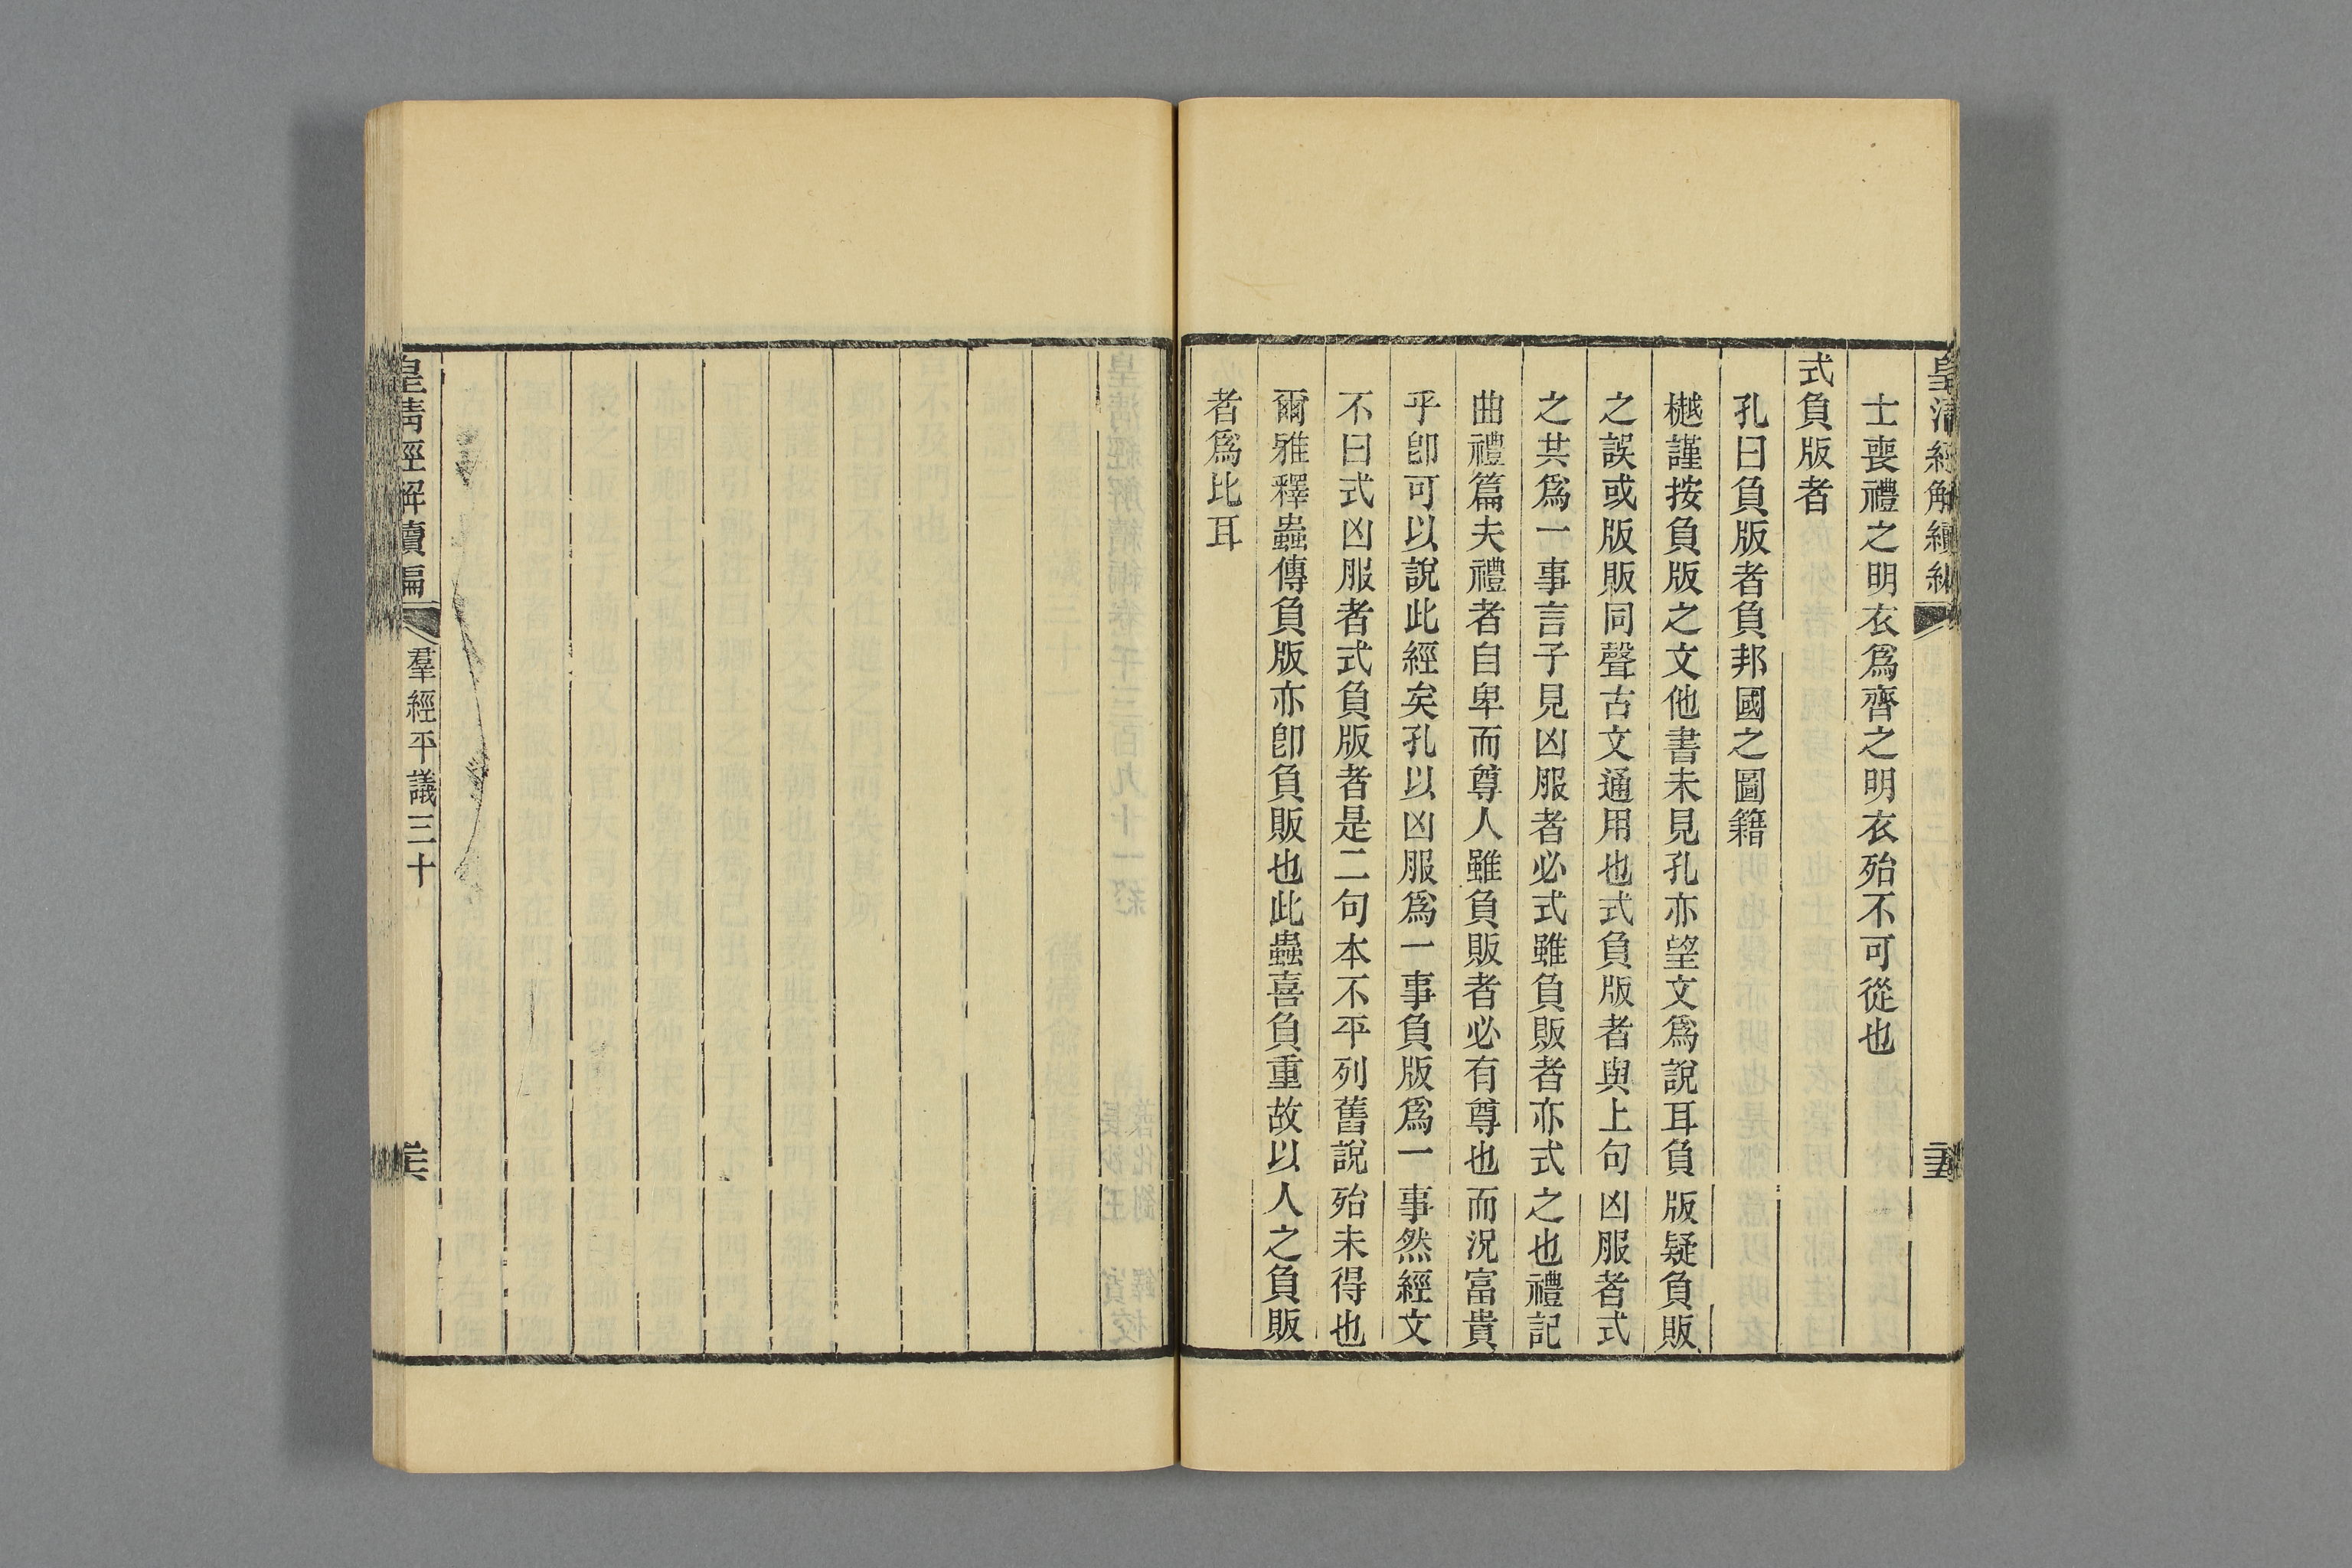 皇清經解續編
士喪禮之明衣爲齊之明衣殆不可從也
式負版者
孔曰負版者負邦國之圖籍
樾謹按負版之文他書未見孔亦望文爲說耳負版疑負販
之誤或版販同聲古文通用也式負版者與上句凶服者式
之共爲一事言子見凶服者必式雖負販者亦式之也禮記
曲禮篇夫禮者自卑而尊人雖負販者必有尊也而況富貴
乎卽可以說此經矣孔以凶服爲一事負版爲一事然經文
不曰式凶服者式負版者是二句本不平列舊說殆未得也
爾雅釋蟲傳負版亦卽負販也此蟲喜負重故以人之負販
者爲比耳
皇清經解續編
羣經平議三十